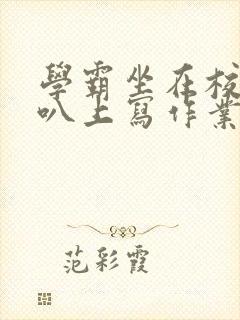 學霸坐在校
叭上寫作業
范彩霞